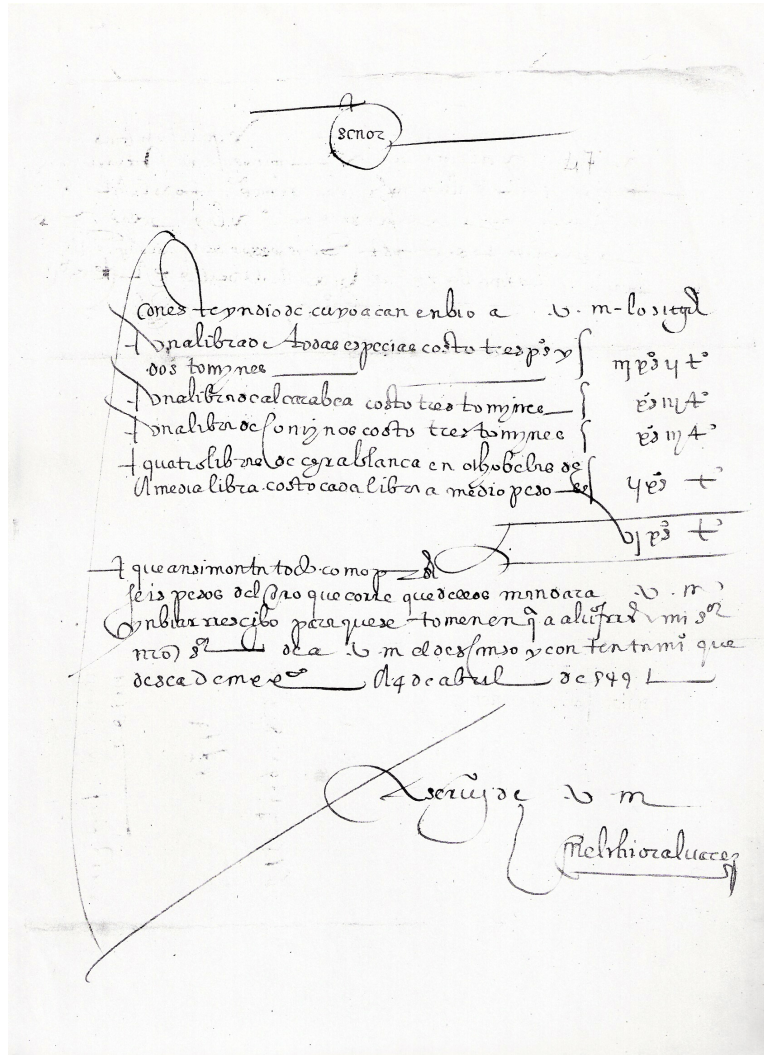 señor
47
Con este yndio de cuyoacan enbio a v. m. lo sigᵉ
una libra de todas especias costo tres pºs y iij pºs ij tº
dos tomynes
una libra de alcarabea costo tres tomynes pºs iij tº
una libra de cominos costo tres tomynes pºs iij tº
quatro libras de cera blanca en ocho belas de
a media libra costo cada libra a medio peso ij pºs tº
pºs tº
que ansi monta todo como p
seis pesos del oro que corre que destos mandara v. m.
enbiar rescibo para que se tomen en qª a mi sºr
nro sºr de a v. m. el descanso y contentamiº que
desea de mexco A 4 de abril de 549
A serui de v m
melchior aluarez